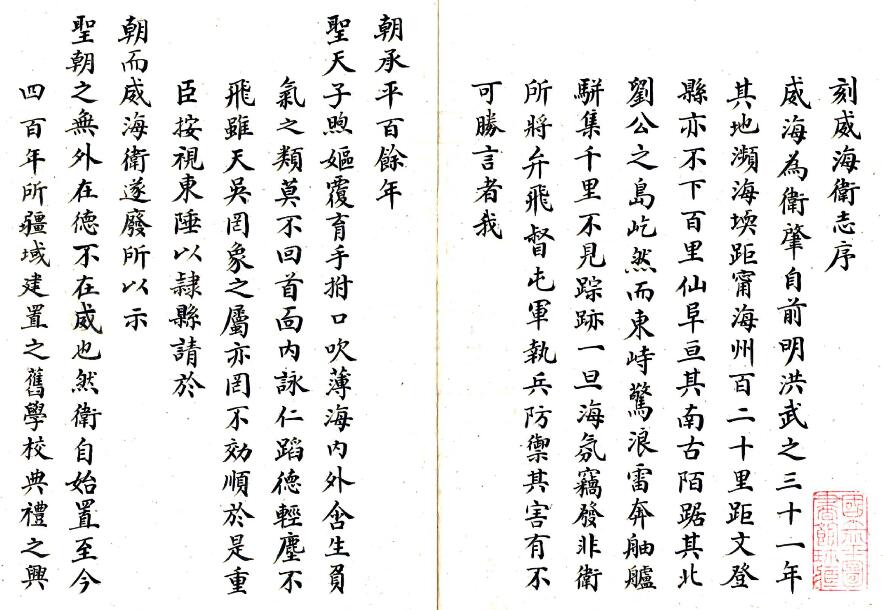 刻威海衛志序
威海為衛肇自前明洪武之三十一年
其地瀕海堧距甯海州百二十里距文登
縣亦不下百里仙阜亘其南古陌踞其北
劉公之島屹然而東峙驚浪雷奔舳艫
駢集千里不見踪跡一旦海氛竊發非衛
所將弁飛督屯軍執兵防禦其害有不
可勝言者我
朝承平百餘年
聖天子煦嫗覆育手拊口吹薄海內外含生負
氣之類莫不回首面內詠仁蹈德輕塵不
飛雖天吳罔象之屬亦罔不効順於是重
臣按視東陲以隷縣請於
朝而威海衛遂廢所以示
聖朝之無外在德不在威也然衛自始置至今
四百年所疆域建置之舊學校典禮之興